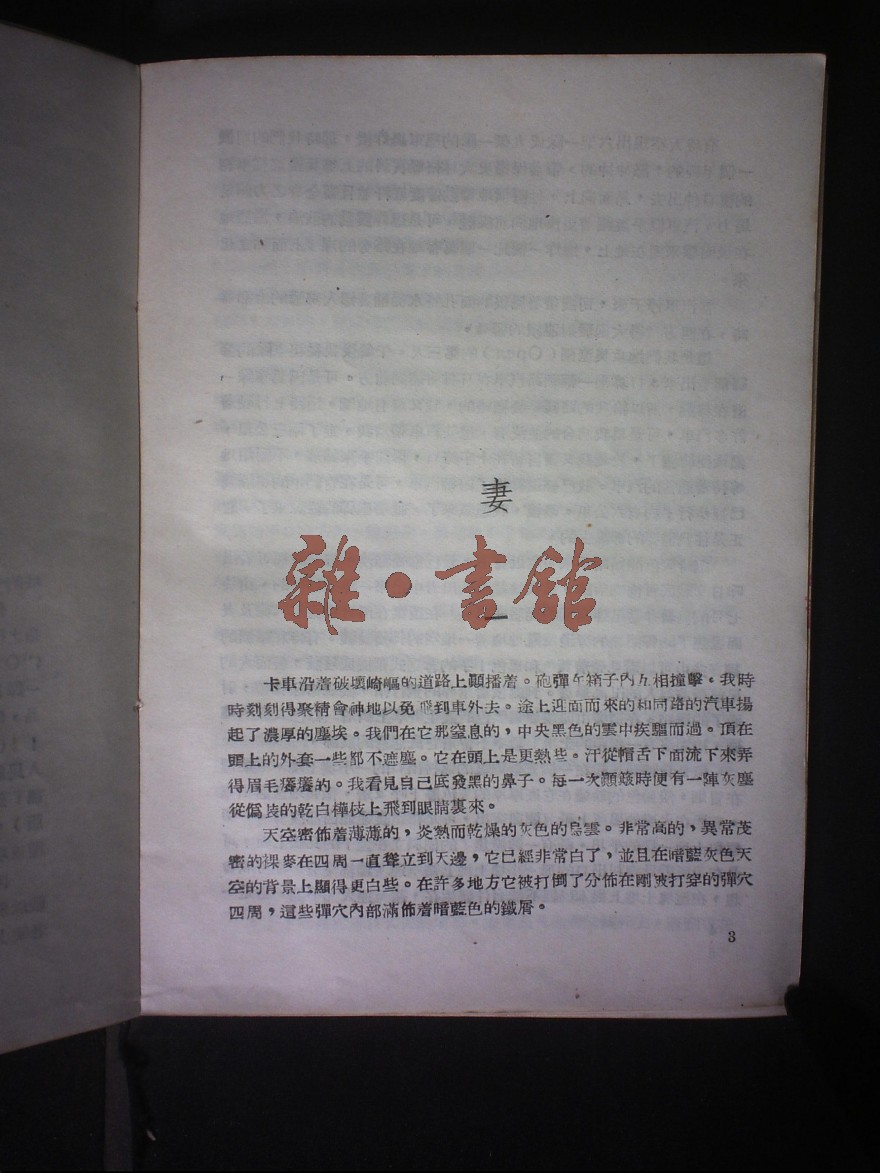 妻
雜·書館
一
卡車沿着破壞崎嶇的道路上顚播着。砲彈在箱子內互相撞擊。我時
時刻刻得聚精會神地以免飛到車外去。途上迎面而來的和同路的汽車揚
起了濃厚的塵埃。我們在它那窒息的，中央黑色的雲中疾驅而過。頂在
頭上的外套一些都不遮塵。它在頭上是更熱些。汗從帽舌下面流下來弄
得眉毛癢癢的。我看見自己底發黑的鼻子。每一次顚簸時便有一陣灰塵
從僞裝的乾白樺枝上飛到眼睛裏來。
天空密佈着薄薄的，炎熱而乾燥的灰色的烏雲。非常高的，異常茂
密的裸麥在四周一直聳立到天邊，它已經非常白了，並且在暗藍灰色天
空的背景上顯得更白些。在許多地方它被打倒了分佈在剛被打穿的彈穴
四周，這些彈穴內部滿佈着暗藍色的鐵屑。
3